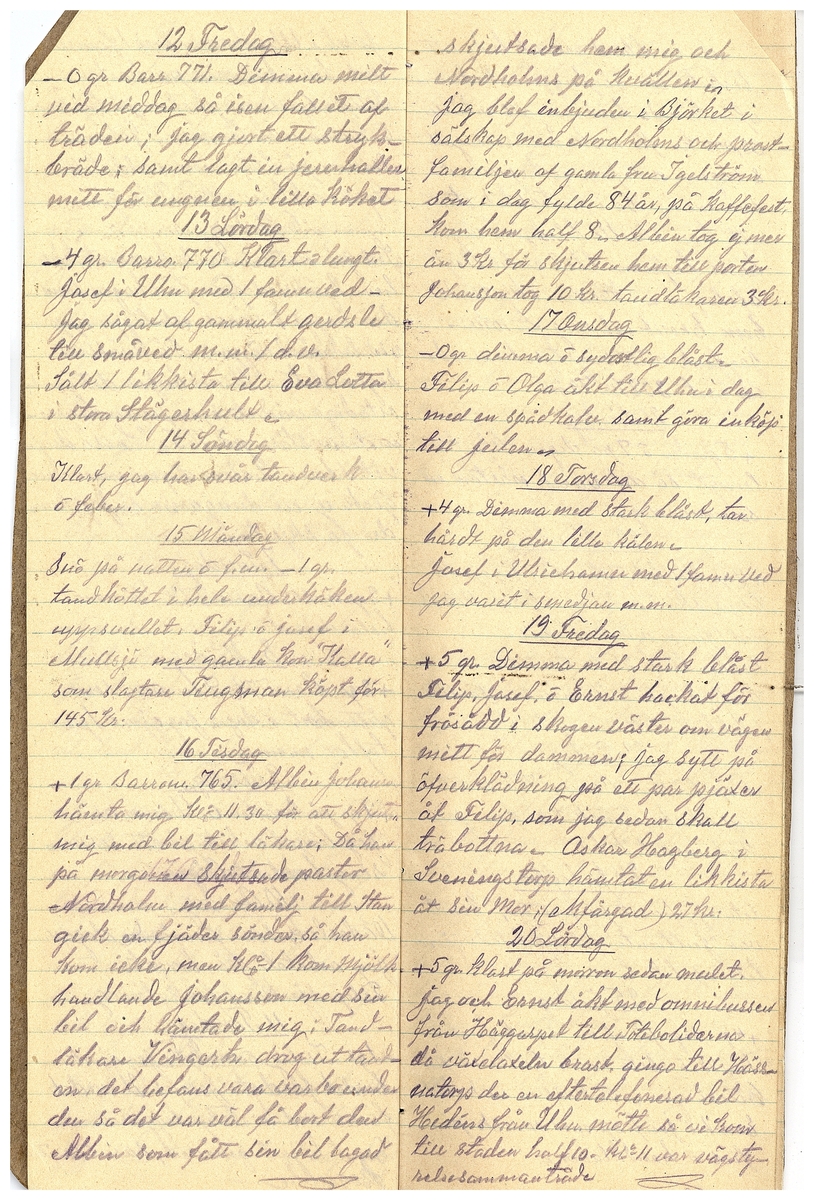 12 Fredag
-0 gr Barr 771. Dimma milt
vid middag så isen fallet af
träden; jag gjort ett stryk-
bräde; samt lagt in jernhällen
mitt för ungnen i lilla köket
13 Lördag
-4 gr. Barro. 770 Klart o lungt.
Josef i Uhn med 1 famn ved-
Jag sågat af gammalt gerdsle
till småved m.m. / d.v.
Sålt 1 likkista till Eva Lotta
i stora Stägerhult
14 Söndag
Klart, jag har svår tandverk
ö feber.
15 Måndag
Snö på natten ö f.m. -1 gr.
tandköttet i hela underkäken
uppsvullet. Filip ö josef i
Mullsjö med gamla kon "Kalla"
som slagtare Tengman köpt för
145 Kr.
16 Tisdag
+1 gr Barrom. 765. Albin Johans
hämta mig kl: 11.30 för att skjut
mig med bil till läkare; Då han
på morgonen skjutsade pastor
Nordholm med familj till stan
gick en fjäder sönder, så han
kom icke, men kl: 1 kom mjölk
handlande Johansson med sin
bil och hämtade mig; Tand-
läkare Vingarth drog ut tand-
en det befans vara varböld under
den så det var väl få bort den
Albin som fått sin bil lagad
skjutsade hem mig och
Nordholms på kvällen
jag blef inbjuden i Björket i
sälskap med Nordholms och prost-
familjen af gamla fru Igelström
som i dag fylde 84 år, på kaffefest.
kom hem half 8. Albin tog ej mer
än 3 Kr för skjutsen hem till porten
Johansson tog 10 kr. tandläkaren 3 kr.
17 Onsdag
-0 gr dimma ö sydostlig blåst
Filip ö Olga åkt till Uhn i dag
med en spädkalv samt göra inköp
till julen
18 Torsdag
+4 gr. Dimma med stark blåst, tar
hårdt på den lilla kälen
Josef i Ulricehamn med 1 famn ved
jag varit i smedjan m.m.
19 Fredag
+5 gr. Dimma med stark blåst
Filip, Josef, ö Ernst hackat för
frösådd i skogen väster om vägen
mitt för dammen; jag sytt på
öfverklädning på ett par pjäxer
åt Filip, som jag sedan skall
träbottna. Oskar Hagberg i
Sveningstorp hämtat en likkista
åt sin Mor; (Ofärgad) 27 kr.
20 Lördag
+5 gr. klart på morron sedan mulet.
jag och Ernst åkt med omnibussen
från Häggarpet till Toteboliderna
då växelaxeln brast, gingo till Häsk-
natorp der en eftertelefonerad bil
Hedéns från Uhn. mötte så vi kom
till staden half 10. kl: 11 var vägsty-
relsesammanträde